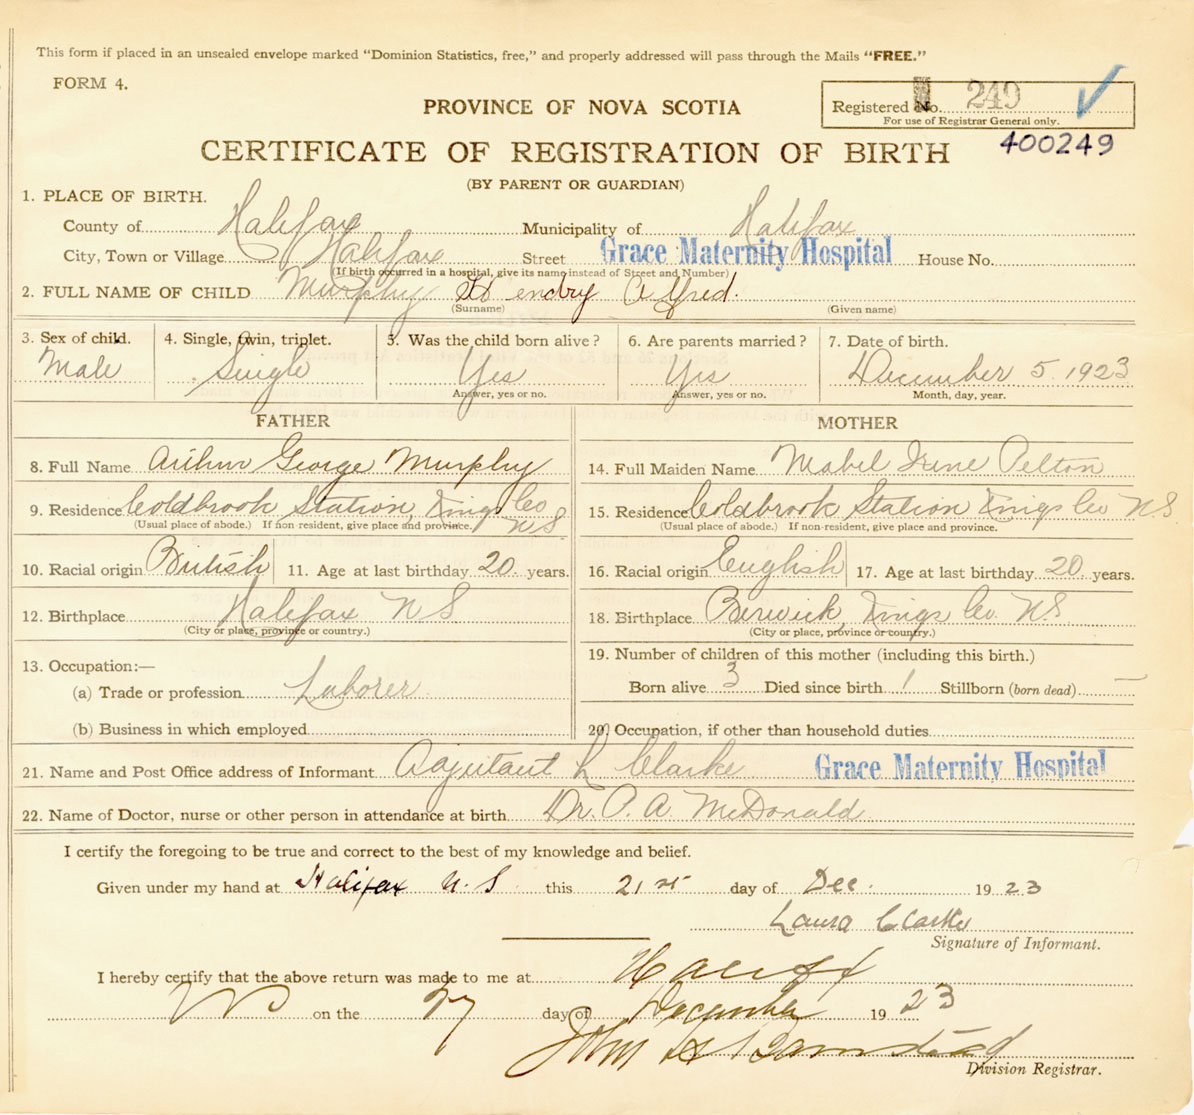 This form if placed in an unsealed envelope marked "Dominion Statistics, free," and properly addressed will pass through the Mails "FREE."
FORM 4.
PROVINCE OF NOVA SCOTIA
Registered No. 249
For use of Registrar General only.
400249
CERTIFICATE OF REGISTRATION OF BIRTH
(BY PARENT OR GUARDIAN)
1. PLACE OF BIRTH.
County of Halifax Municipality of Halifax
City, Town or Village Halifax Street Grace Maternity Hospital House No.
(If birth occurred in a hospital, give its name instead of Street and Number)
2. FULL NAME OF CHILD Murphy Hendry Alfred.
(Surname) (Given name)
3. Sex of child. 4. Single, twin, triplet. 5. Was the child born alive? 6. Are parents married? 7. Date of birth.
Male Single Yes Yes December 5 1923
Answer, yes or no. Answer, yes or no. Month, day, year.
FATHER MOTHER
8. Full Name Arthur George Murphy 14. Full Maiden Name Mabel Irene Pelton
9. Residence Coldbrook Station Kings Co NS 15. Residence Coldbrook Station Kings Co NS
(Usual place of abode.) If non-resident, give place and province. (Usual place of abode.) If non-resident, give place and province.
10. Racial origin British 11. Age at last birthday 20 years. 16. Racial origin English 17. Age at last birthday 20 years.
12. Birthplace Halifax NS 18. Birthplace Berwick, Kings Co. N.S.
(City or place, province or country.) (City or place, province or country.)
13. Occupation:— 19. Number of children of this mother (including this birth.)
(a) Trade or profession Laborer Born alive 3 Died since birth 1 Stillborn (born dead) —
(b) Business in which employed 20. Occupation, if other than household duties
21. Name and Post Office address of Informant Adjutant L Clarke Grace Maternity Hospital
22. Name of Doctor, nurse or other person in attendance at birth Dr. P. A. McDonald
I certify the foregoing to be true and correct to the best of my knowledge and belief.
Given under my hand at Halifax N.S this 21st day of Dec. 1923
Laura Clarke
Signature of Informant.
I hereby certify that the above return was made to me at Halifax
NS on the 27 day of December 1923
John A
Division Registrar.